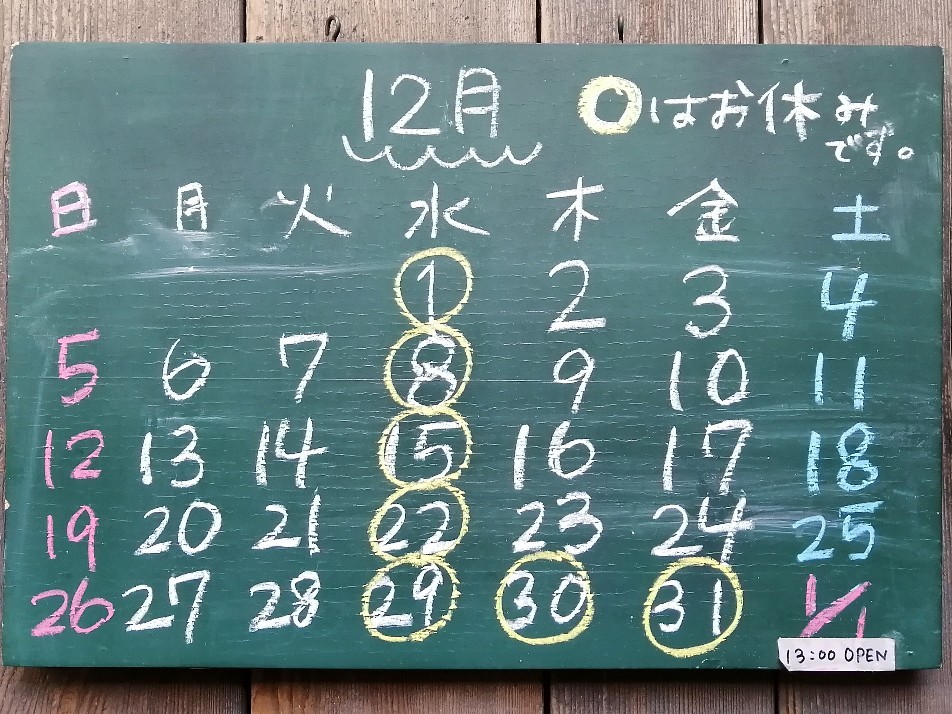 12月
○はお休み
です。
日 月 火 水 木 金 土
1 2 3 4
5 6 7 8 9 10 11
12 13 14 15 16 17 18
19 20 21 22 23 24 25
26 27 28 29 30 31 1/1
13:00 OPEN